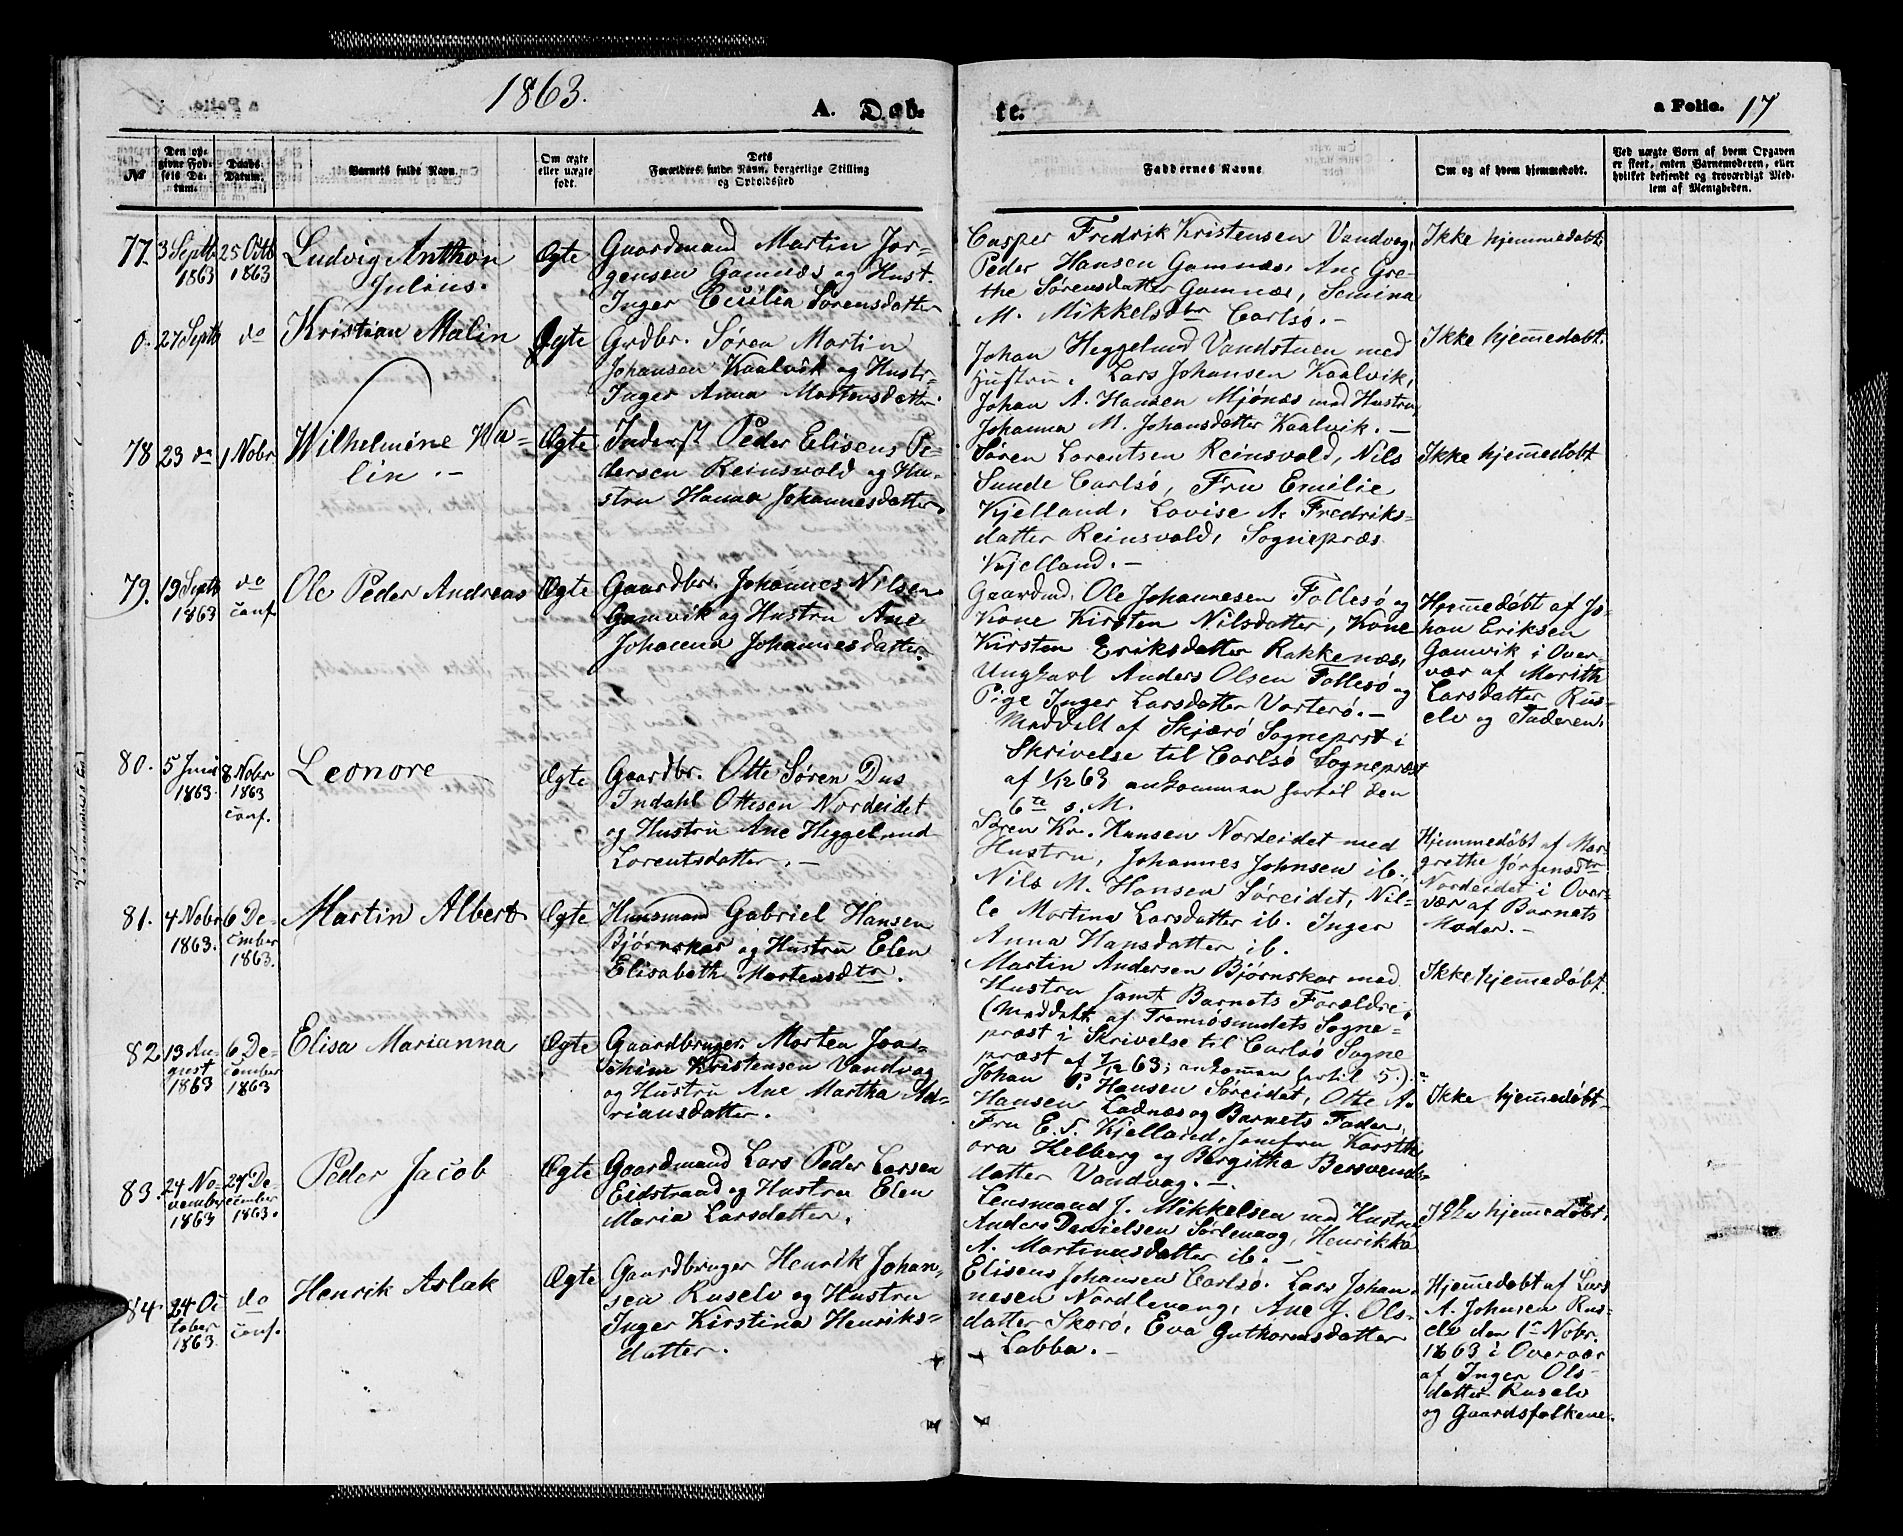 1863.
A. Døb-
te.
a Folio. 17
№
Den op-
givne Fød-
sels Da-
tum.
Daabs
Datum.
Barnets fulde Navn.
Om ægte
eller uægte
født.
Dets
Forældres fulde Navn, borgerlige Stilling
og Opholdssted
Faddernes Navne
Om og af hvem hjemmedøbt.
Ved uægte Børn af hvem Opgaven
er skeet, enten Barnemoderen, eller
hvilket bekjendt og troværdigt Med-
lem af Menigheden.
77.
3 Septb
1863
25 Octb
1863
Ludvig Anthon
Julius.
Ægte
Gaardmand Martin Jør-
gensen Gamnæs og Hust.
Inger Cecilia Sørensdatter
Casper Fredrik Kristensen Vandvag,
Peder Hansen Gamnæs, Ane Gre-
the Sørensdatter Gamnæs, Semina
M. Mikkelsdtr Carlsø. -
Ikke hjemmedøbt.
0.
27 Septb
do
Kristian Malin
Ægte
Grdbr. Søren Martin
Johansen Kaalvik og Hustr.
Inger Anna Mortensdatter.
Johan Heggelund Vandstuen med
Hustru, Lars Johansen Kaalvik,
Johan A. Hansen Mjønæs med Hustru
Johanna M. Johansdatter Kaalvik. -
Ikke hjemmedøbt.
78
23 do
1 Nobr
Wilhelmine Wa-
lin. -
Ægte
Inderst Peder Elisens Pe-
dersen Reinsvold og Hu-
stru Hanna Johannesdatter.
Søren Lorentsen Reinsvold, Nils
Sunde Carlsø, Fru Emilie
Kjelland, Lovise A. Fredriks-
datter Reinsvold, Sognepræs
Kjelland. -
Ikke hjemmedøbt
79.
19 Septb
1863
do
conf.
Ole Peder Andreas
Ægte
Gaardbr. Johannes Nilsen
Gamvik og Hustru Ane
Johanna Johannesdatter.
Gaardmd. Ole Johannesen Follesø og
Kone Kirsten Nilsdatter, Kone
Kirsten Eriksdatter Rakkenæs,
Ungkarl Anders Olsen Follesø og
Pige Inger Larsdatter Vorterø. -
Meddelt af Skjærø Sogneprst i
Skrivelse til Carlsø Sognepræst
af 1/12 63 ankomman hertil den
6te s. M.
Hjemmedøbt af Jo-
han Eriksen
Gamvik i Over-
vær af Marith
Larsdatter Rus-
elv og Faderen.
80.
5 Juni
1863.
8 Nobr
1863
conf.
Leonore
Ægte
Gaardbr. Otte Søren Dus
Indahl Ottesen Nordeidet
og Hustru Ane Heggelund
Lorentsdatter. -
Søren Kr. Hansen Nordeidet med
Hustru, Johannes Johnsen ib.
Nils M. Hansen Søreidet, Nil-
le Martina Larsdatter ib. Inger
Anna Hansdatter ib.
Hjemmedøbt af Mar-
grethe Jørgensdtr
Nordeidet i Over-
vær af Barnets
Moder. -
81.
4 Nobr
1863.
6 De-
cember
1863.
Martin Albert
Ægte
Huusmand Gabriel Hansen
Bjørnskar og Hustru Elen
Elisabeth Mortensdtr.
Martin Andersen Bjørnskar med
Hustru samt Barnets Forældre,
(Meddelt af Tromsøsundets Sogne-
præst i Skrivelse til Carlsø Sogne
præst af 1/12 63; ankoman hertil 5.).
Ikke hjemmedøbt.
82.
13 Au-
gust
1863
6 De-
cember
1863
Elisa Marianna
Ægte
Gaardbruger Morten Joa-
chim Kristensen Vandvag
og Hustru Ane Martha Ad-
riansdatter.
Johan P. Hansen Søreidet, Otte A.
Hansen Ladnæs og Barnets Fader,
Fru E. S. Kjelland, Jomfru Karsti
ora Helberg og Bergitha Bersvends-
datter Vandvag. -
Ikke hjemmedøbt.
83.
24 No-
vember
1863
27 De-
cember
1863.
Peder Jacob
Ægte
Gaardmand Lars Peder Larsen
Eidstrand og Hustru Elen
Maria Larsdatter.
Lensmand J. Mikkelsen med Hustru
Anders Danielsen Sørlenang, Henrikka
A. Martinusdatter ib. -
Ikke hjemmedøbt.
84.
24 Oc
tober
1863.
do
conf.
Henrik Aslak
Ægte
Gaardbruger Henrik Johan-
sen Ruselv og Hustru
Inger Kirstina Henriks-
datter.
Elisens Johansen Carlsø. Lars Johan-
nesen Nordlenang, Ane J. Ols-
datter Skorø, Eva Guthormsdatter
Labba. -
Hjemmedøbt af Lars
A. Johnsen Rus-
elv den 1ste Nobr.
1863 i Overvær
af Inger Ols-
datter Ruselv
og Gaardsfolkene.